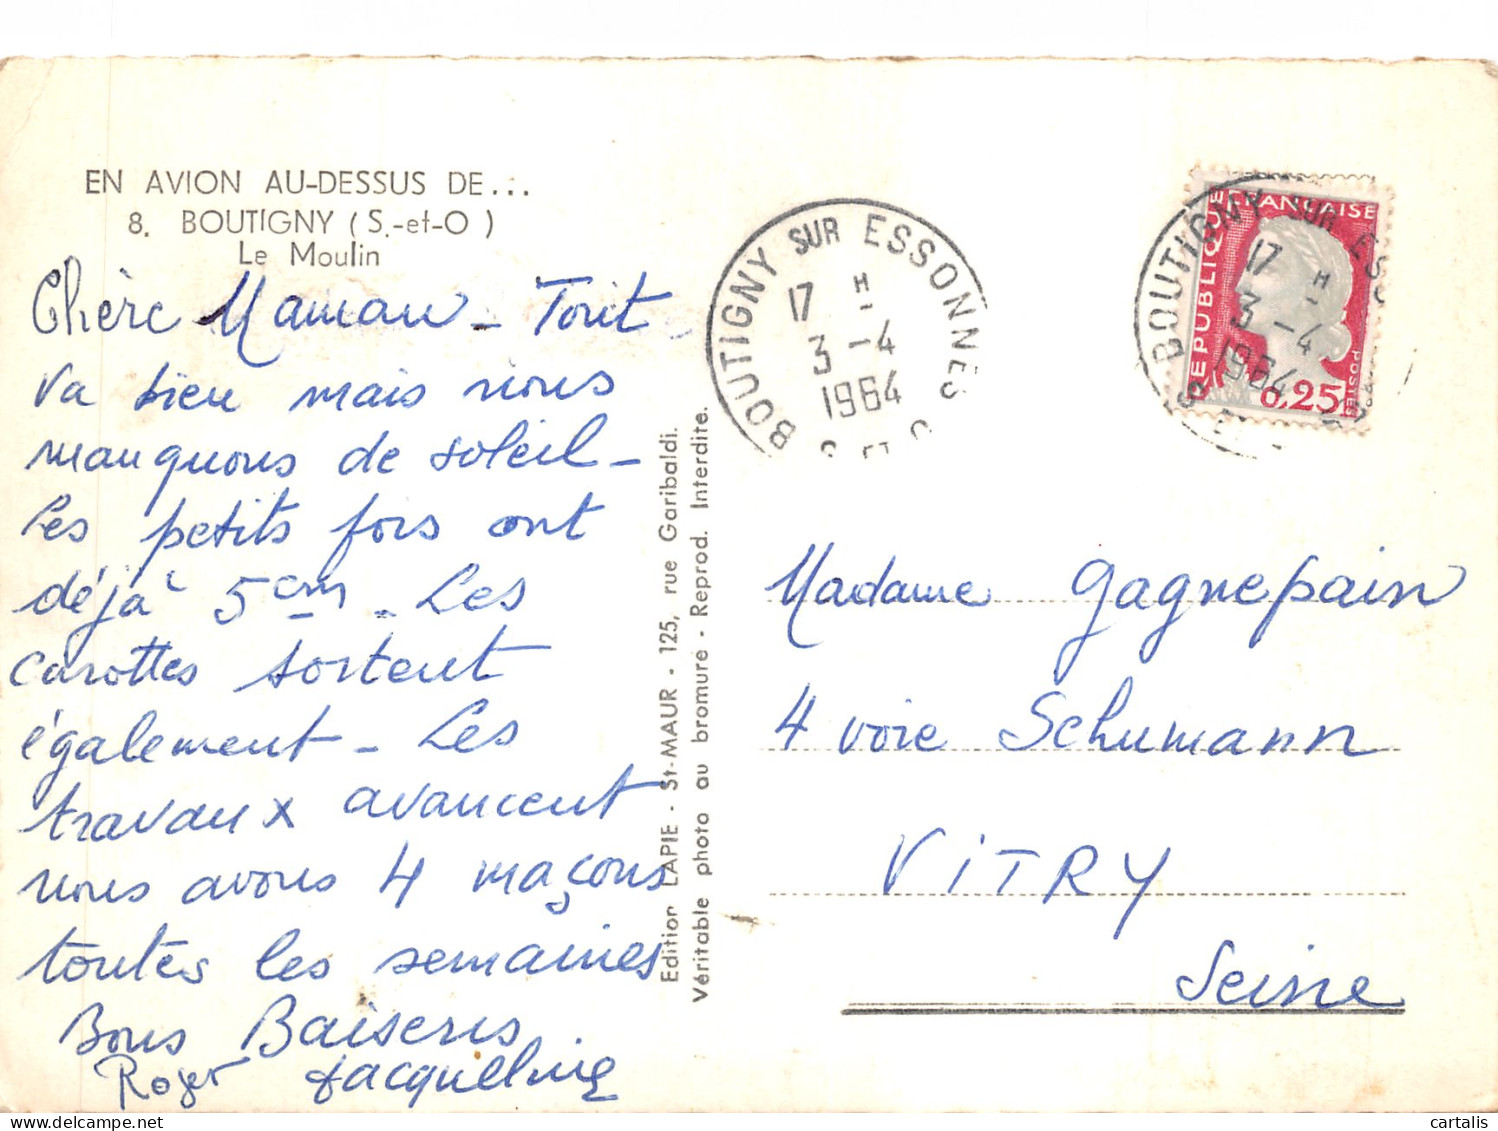 EN AVION AU-DESSUS DE...
8. BOUTIGNY (S.-et-O)
Le Moulin
Chère Maman - Tout
va bien mais nous
manquons de soleil -
Les petits pois ont
déjà 5 cm - Les
carottes sortent
également - Les
travaux avancent
nous avons 4 maçons
toutes les semaines
Bons Baisers
Roger Jacqueline
Edition LAPIE - St-MAUR - 125, rue Garibaldi.
Véritable photo au bromure - Reprod. Interdite.
BOUTIGNY SUR ESSONNES
17 H
3 - 4
1964
S ET O
REPUBLIQUE FRANÇAISE
POSTES
0,25
BOUTIGNY SUR ESS
17 H
3 - 4
1964
Madame Gagnepain
4 voie Schumann
VITRY
Seine
cartalis